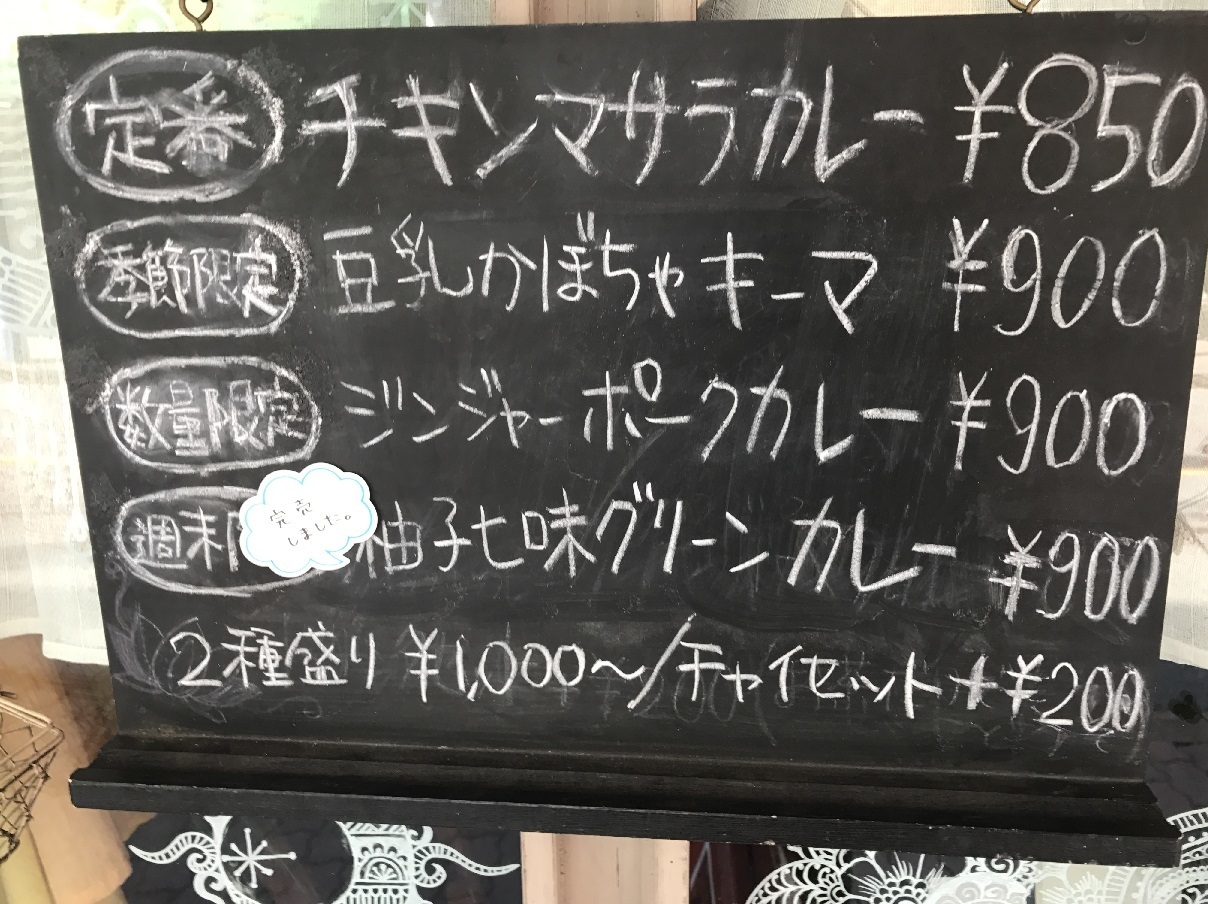 定番 チキンマサラカレー ¥850
季節限定 豆乳かぼちゃキーマ ¥900
数量限定 ジンジャーポークカレー ¥900
週末 柚子七味グリーンカレー ¥900
完売
しました。
2種盛り ¥1,000〜/チャイセット +¥200